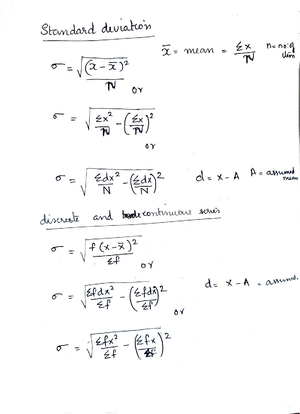 Standard deviation
x̄ = mean = Σx/N n = no. of
σ = √((x - x̄)²/N) or
σ = √(Σx²/N - (Σx/N)²)
or
σ = √(Σdx²/N - (Σdx/N)²) d = x - A A = assumed mean
discrete and continuous series
σ = √(f(x - x̄)²/Σf)
or
σ = √(Σfdx²/Σf - (Σfdx/Σf)²) d = x - A = assumed.
or
σ = √(Σfx²/Σf - (Σfx/Σf)²)